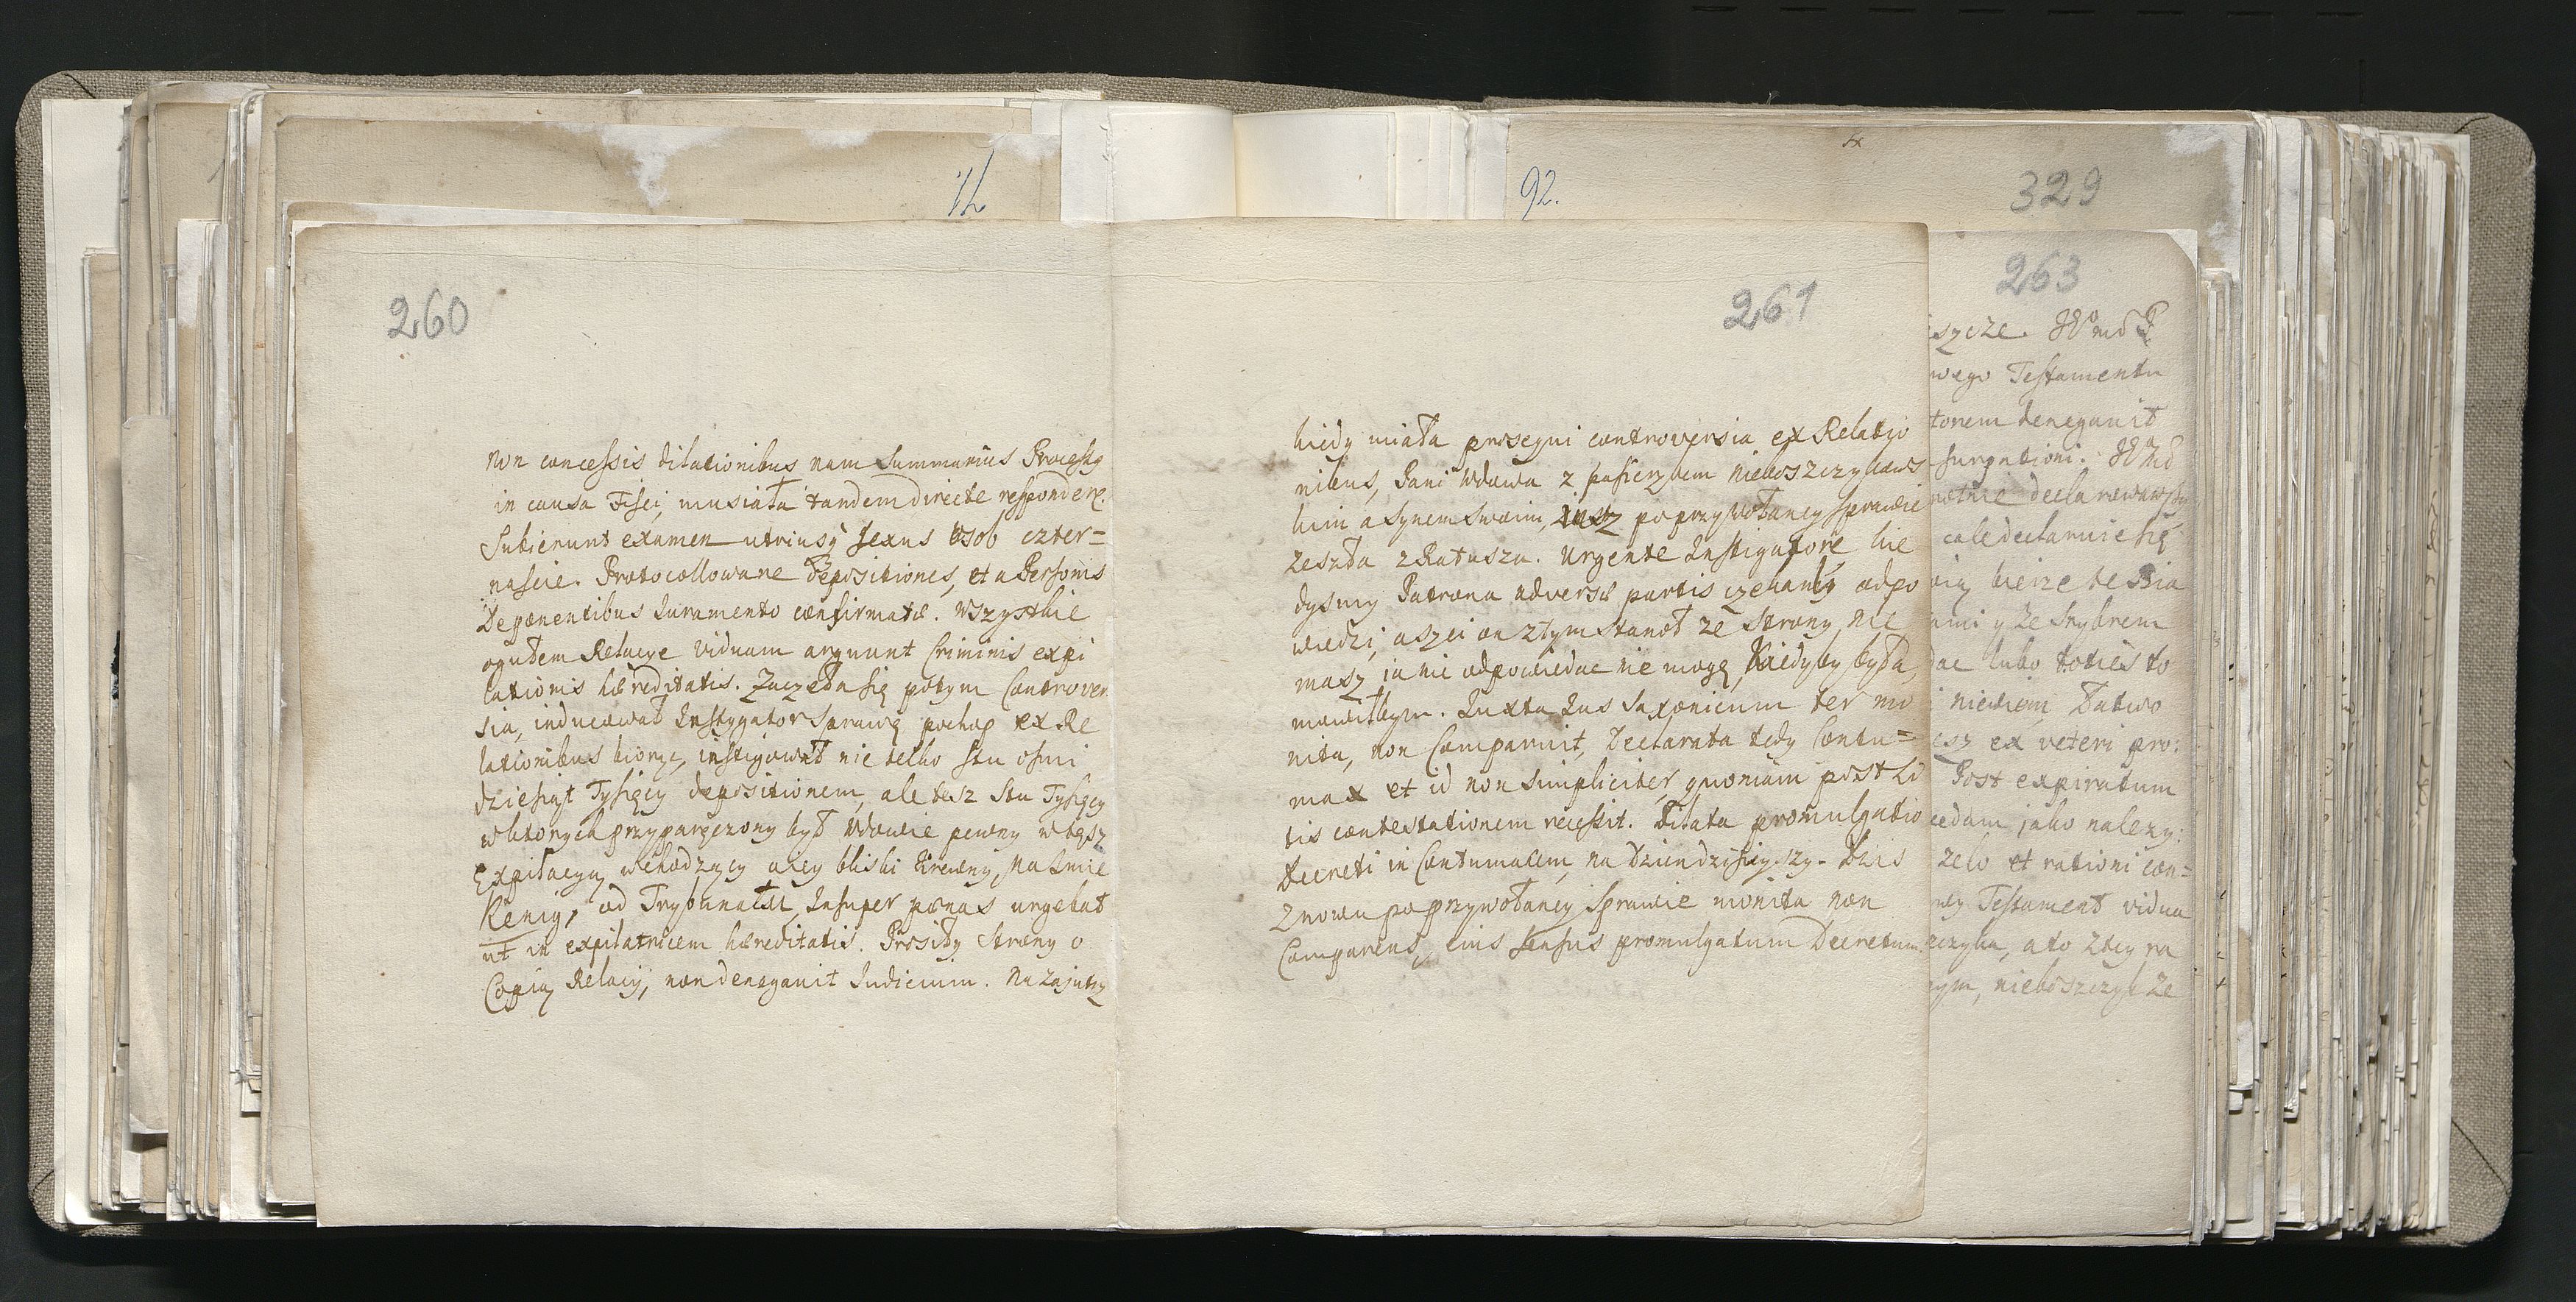 12
260
non concessis dilationibus nam Summarius Processq
in causa Fisci, musiała tandem directe respondere.
Subierunt examen utriusq sexus Osob czter=
nascie. Protocollowane depositiones, et a Personis
Deponentibus Iuramento confirmatæ. Wszystkie
ogułem Relacye viduam arguunt Criminis expi
lationis hæreditatis. Zaczeła się potym Controver
sia, inducował Instygator Sprawę pochop ex Re
lationibus biorąc, instigował nie telko stu osmi
dziesiąt Tysięcy depositionem, ale tesz Stu Tysięcy
w ktorych przyparęczony był Wdowie pewny w tęsz
Expilacyą wchodzący a iey bliski Krewny, na Imie
Kenig, od Trybunału, Insuper pœnas urgebat
ut in expilatricem hæreditatis. Prosiły Strony o
Copią Relacij, non denegavit Iudicium. Nazajutrz
92.
329
261
kiedy miała prosequi controversia ex Relatio
nibus, Pani Wdowa z pasierzbem nieboszczykows
kim a synem swoim, iusz po przywołaney sprawie
zeszła z Ratusza. Urgente Instigatore kie
dysmy Patrona adversæ partis czekali odpo
wiedzi, aszci on z tym stanoł ze Strony nie
masz ia nic odpowiedac nie mogę, Kiedyby była,
mowiłbym. Iuxta Ius Saxonicum ter mo
nita, non Comparuit, Declarata tedy Contu=
max et id non simpliciter, quoniam post Li
tis contestationem recessit. Dilata promulgatio
Decreti in Contumacem, na Dzien dzisieyszy. Dzis
znowu po przywołaney Sprawie monita non
Comparens, eius sensus promulgatum Decretum.
263
wego Testamentu
torem denegavit
surgationi.
cale declaruie się
ami y ze srybrem
dac lubo toties to
niewiem Łatwo
esz ex veteri pro:
Post expiratum
cedam jako nalezy:
zelo et rationi con=
Testament vidua
czyka, a to z tey ra
ym, nieboszczyk ze